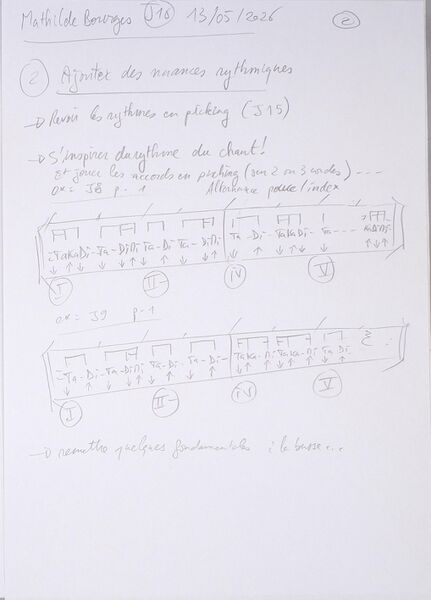 Mathilde Bourges J16 13/05/2026 2
2 Ajouter des nuances rythmiques
→ Revoir les rythmes en picking (J15)
→ S'inspirer du rythme du chant!
Et jouer les accords en picking (sur 2 ou 3 cordes) ---
ex = J8 p-1 Alternance pouce/index
TaKaDi- Ta- DiDi Ta- Di- Ta- DiDi Ta- Di- TaKaDi Ta- ---
↓ ↑ ↓ ↑
I II- IV V
ex = J9 p-1
Ta- Di- Ta- DiDi Ta- Di- Ta- Di- TaKa- TaKa- Ta- Di-
I II- IV V
→ remettre quelques fondamentales à la basse...